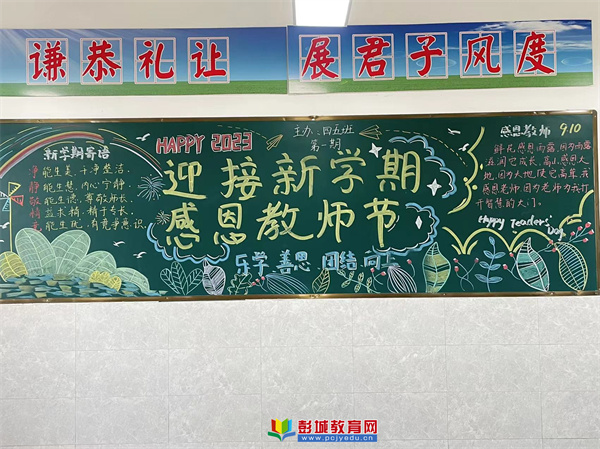 谦恭礼让 展君子风度
新学期寄语
净能生美、干净整洁.
静能生慧、内心宁静.
敬能生德、尊敬师长.
能生优、有竞争意识
HAPPY 2023
主办:四五班
第一期
迎接新学期
感恩教师节
乐学 善思 团结 向上
感恩教师 9.10
鲜花感恩雨露,因为雨露
滋润它成长,高山感恩大
地,因为大地使它高耸,我
感恩老师,因为老师为我打
开智慧的大门。
Happy Teaders'
Day
彭城教育网
www.pcjyedu.cn